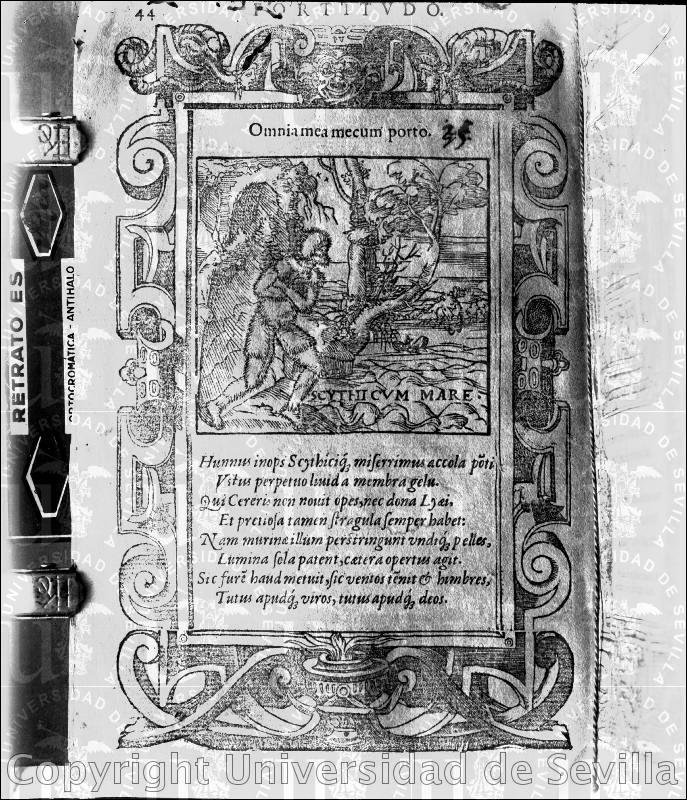 44 FORTITVDO.
Omnia mea mecum porto. 35
SCYTHICVM MARE.
Hunnus inops Scythiciq́; miserrimus accola pōti
Vstus perpetuo liuida membra gelu.
Qui Cereris non nouit opes, nec dona Lyæi,
Et pretiosa tamen stragula semper habet:
Nam murinæ illum perstringunt vndiq́; pelles,
Lumina sola patent, cætera opertus agit.
Sic furē haud metuit, sic ventos tēnit & himbres,
Tutus apudq́; viros, tutus apudq́; deos.
RETRATO ES
ORTOCROMÁTICA - ANTIHALO
Copyright Universidad de Sevilla